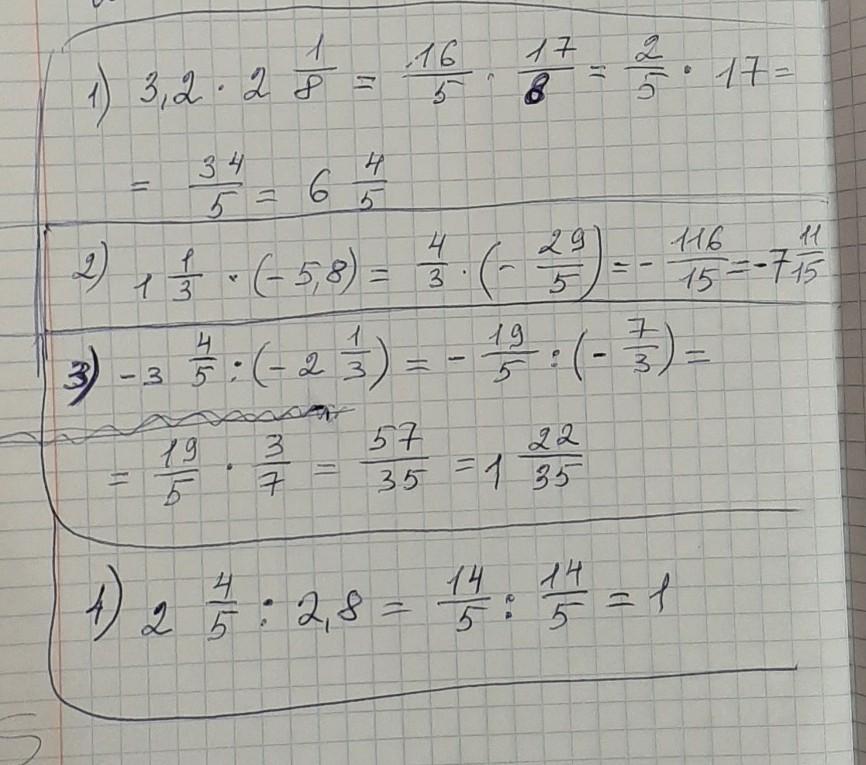 1) 3,2 · 2 1/8 = 16/5 · 17/8 = 2/5 · 17 =
= 34/5 = 6 4/5
2) 1 1/3 · (-5,8) = 4/3 · (- 29/5) = - 116/15 = -7 11/15
3) -3 4/5 : (-2 1/3) = - 19/5 : (- 7/3) =
= 19/5 · 3/7 = 57/35 = 1 22/35
4) 2 4/5 : 2,8 = 14/5 : 14/5 = 1